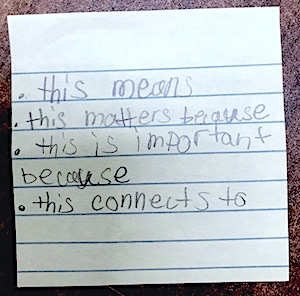 . this means
. this matters because
. this is important
because
. this connects to